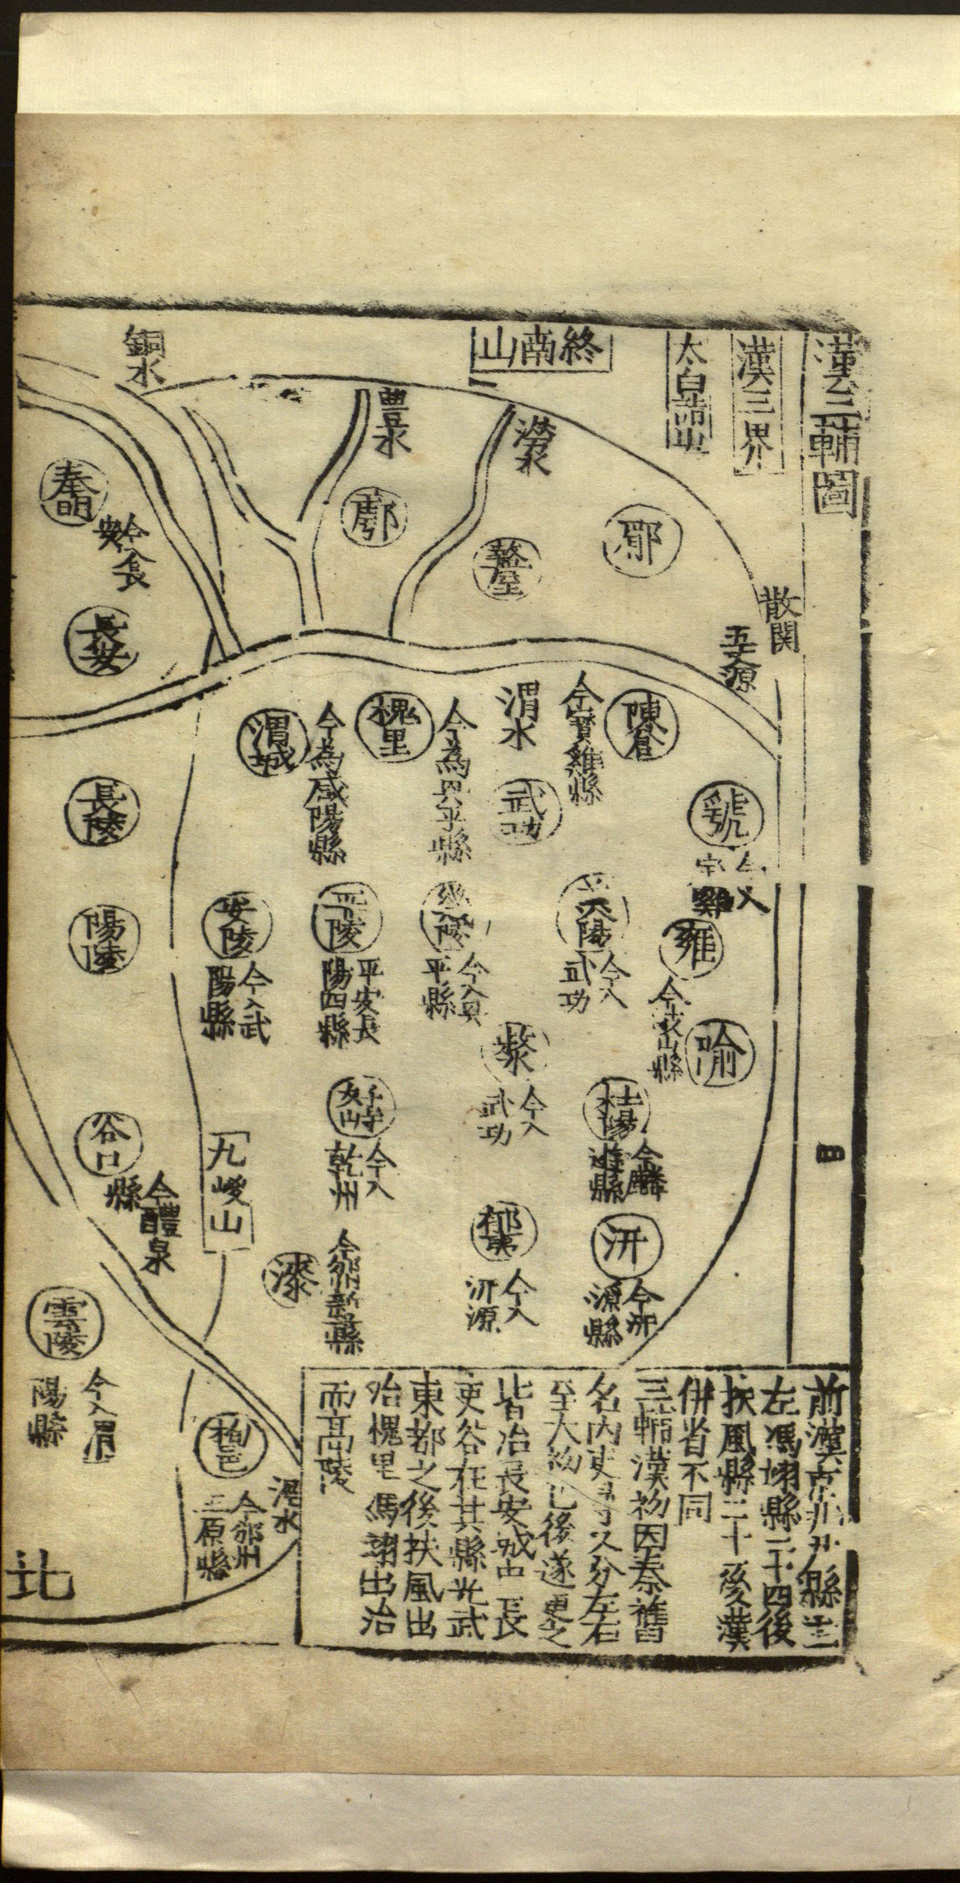 漢三輔圖
漢三界
太白諸山
終南山
澇水
豐水
鎬水
散關
五丈源
郿
盩厔
鄠
奉明
今長安
長安
陳倉
今寶雞縣
渭水
武功
槐里
今為興平縣
渭城
今為咸陽縣
長陵
虢
今入寶雞
雍
隃
美陽
今入武功
平陵
平安長陽四縣
安陵
今入武陽縣
陽陵
斄
今入武功
杜陽
今麟遊縣
好畤
今入乾州
九嵕山
谷口
今醴泉縣
郁夷
今入汧源
汧
今汧源縣
漆
今邠州新平縣
雲陵
今入渭陽縣
栒邑
今邠州三原縣
涇水
北
左馮翊縣二十四後
扶風縣二十一後漢
併省不同
三輔漢初因秦舊
至太初已後遂更之
皆治長安城中長
吏各在其縣光武
東都之後扶風出
治槐里馮翊出治
而高陵